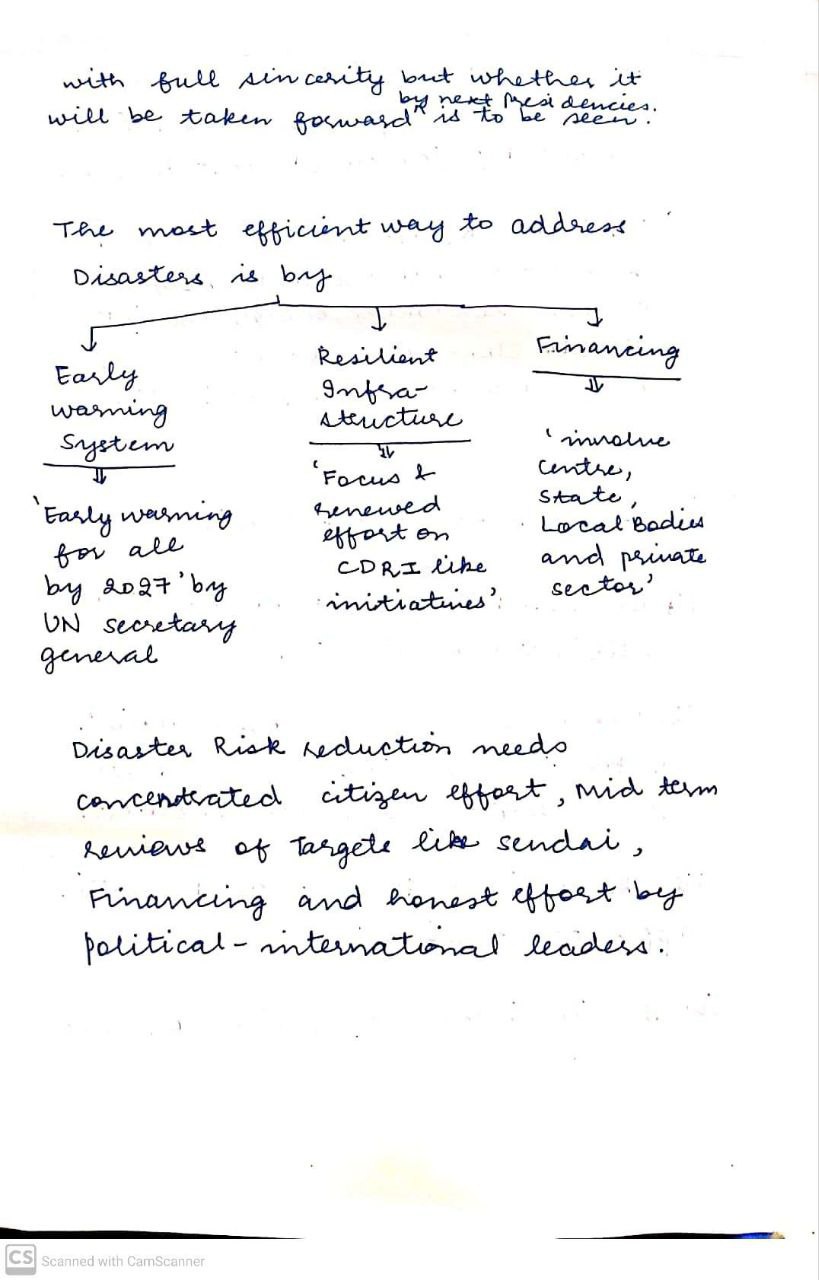 with full sincerity but whether it
by next Presidencies.
will be taken forward is to be seen.
The most efficient way to address
Disasters is by
Early
warning
System
'Early warning
for all
by 2027' by
UN secretary
general
Resilient
Infra-
structure
'Focus &
renewed
effort on
CDRI like
initiatives'
Financing
'involve
centre,
State,
Local Bodies
and private
sector'
Disaster Risk reduction needs
concentrated citizen effort, Mid term
reviews of Targets like sendai,
Financing and honest effort by
political-international leaders.
CS Scanned with CamScanner